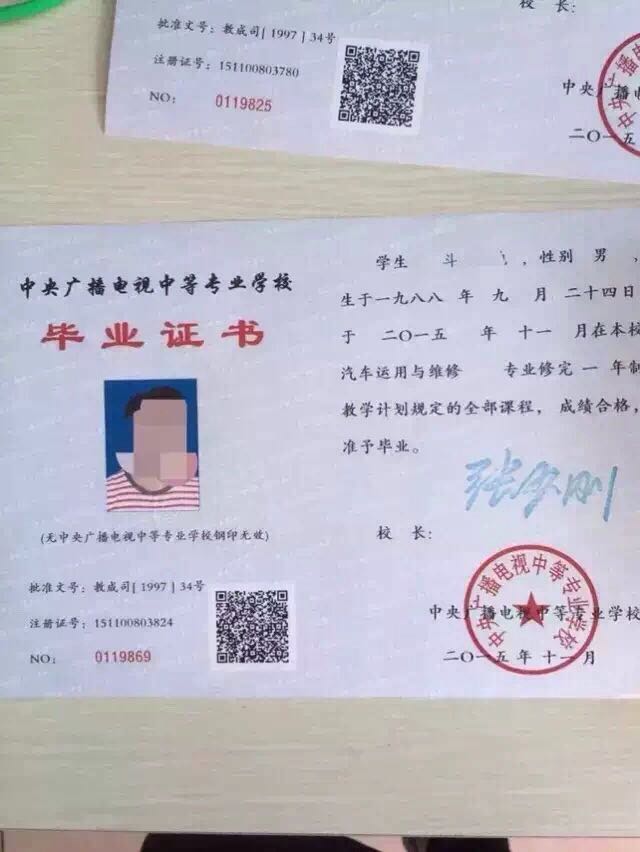 校 长:
批准文号: 教成司[ 1997 ] 34号
注册证号: 151100803780
NO: 0119825
中央广播电
二〇一五
中央广播电视中等专业学校
毕业证书
(无中央广播电视中等专业学校钢印无效)
批准文号: 教成司[ 1997 ] 34号
注册证号: 151100803824
NO: 0119869
学生 斗 , 性别 男 ,
生于一九八八 年 九 月 二十四日
于 二〇一五 年 十一 月在本校
汽车运用与维修 专业修完 一 年制
教学计划规定的全部课程, 成绩合格,
准予毕业。
校 长:
中央广播电视中等专业学校
中央广播电视中等专业学校
二〇一五年 十一月